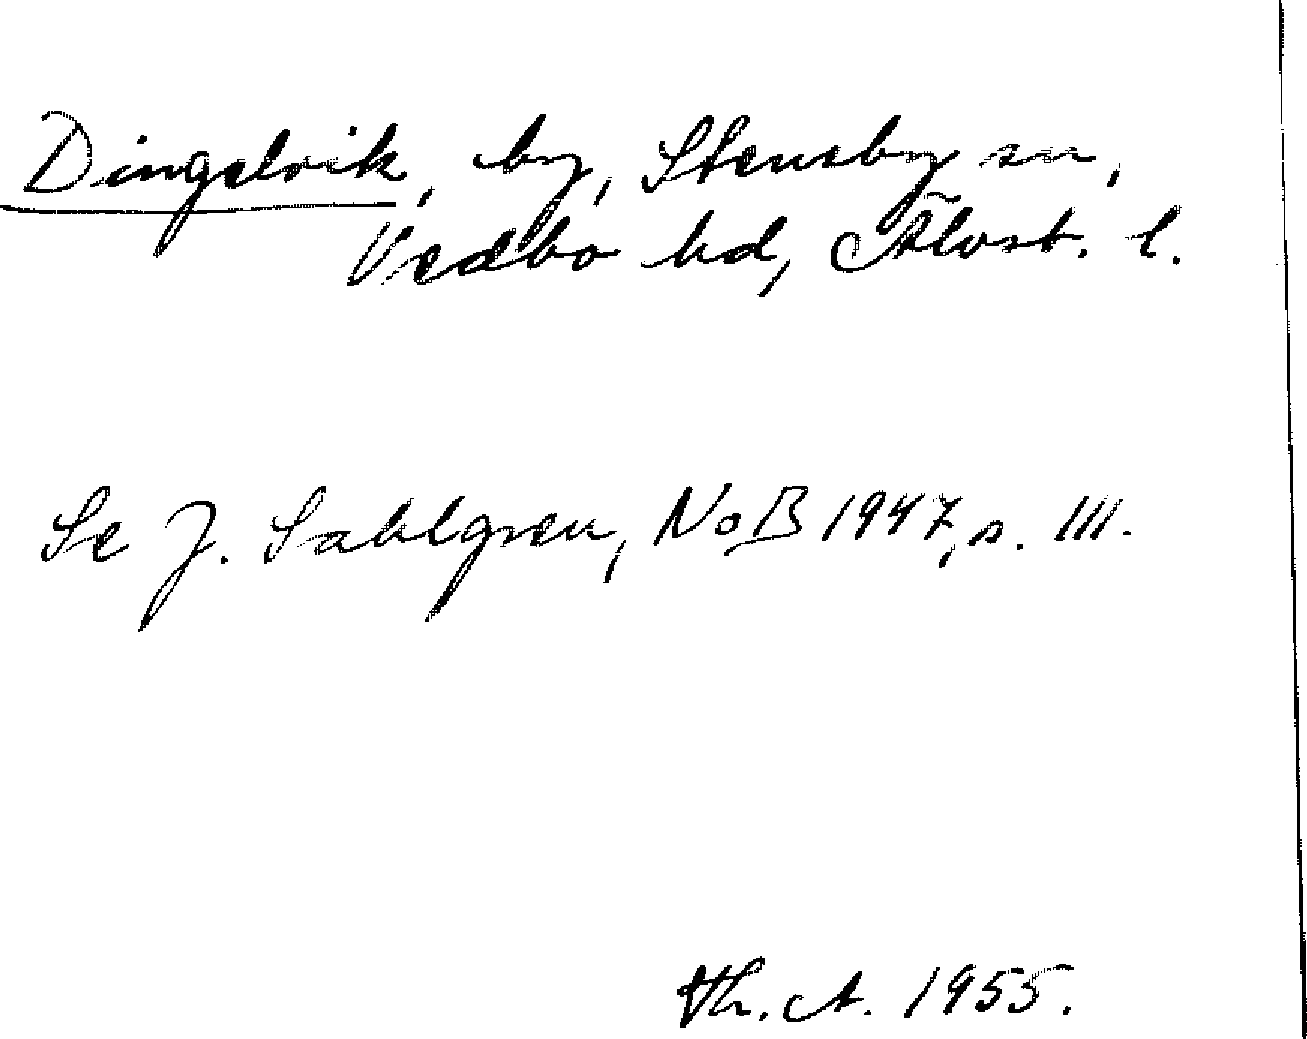 Dingelvik, by, Steneby sn,
Vedbo hd, Älvsb. l.
Se J. Sahlgren, NoB 1947, s. 111.
Th. A. 1955.